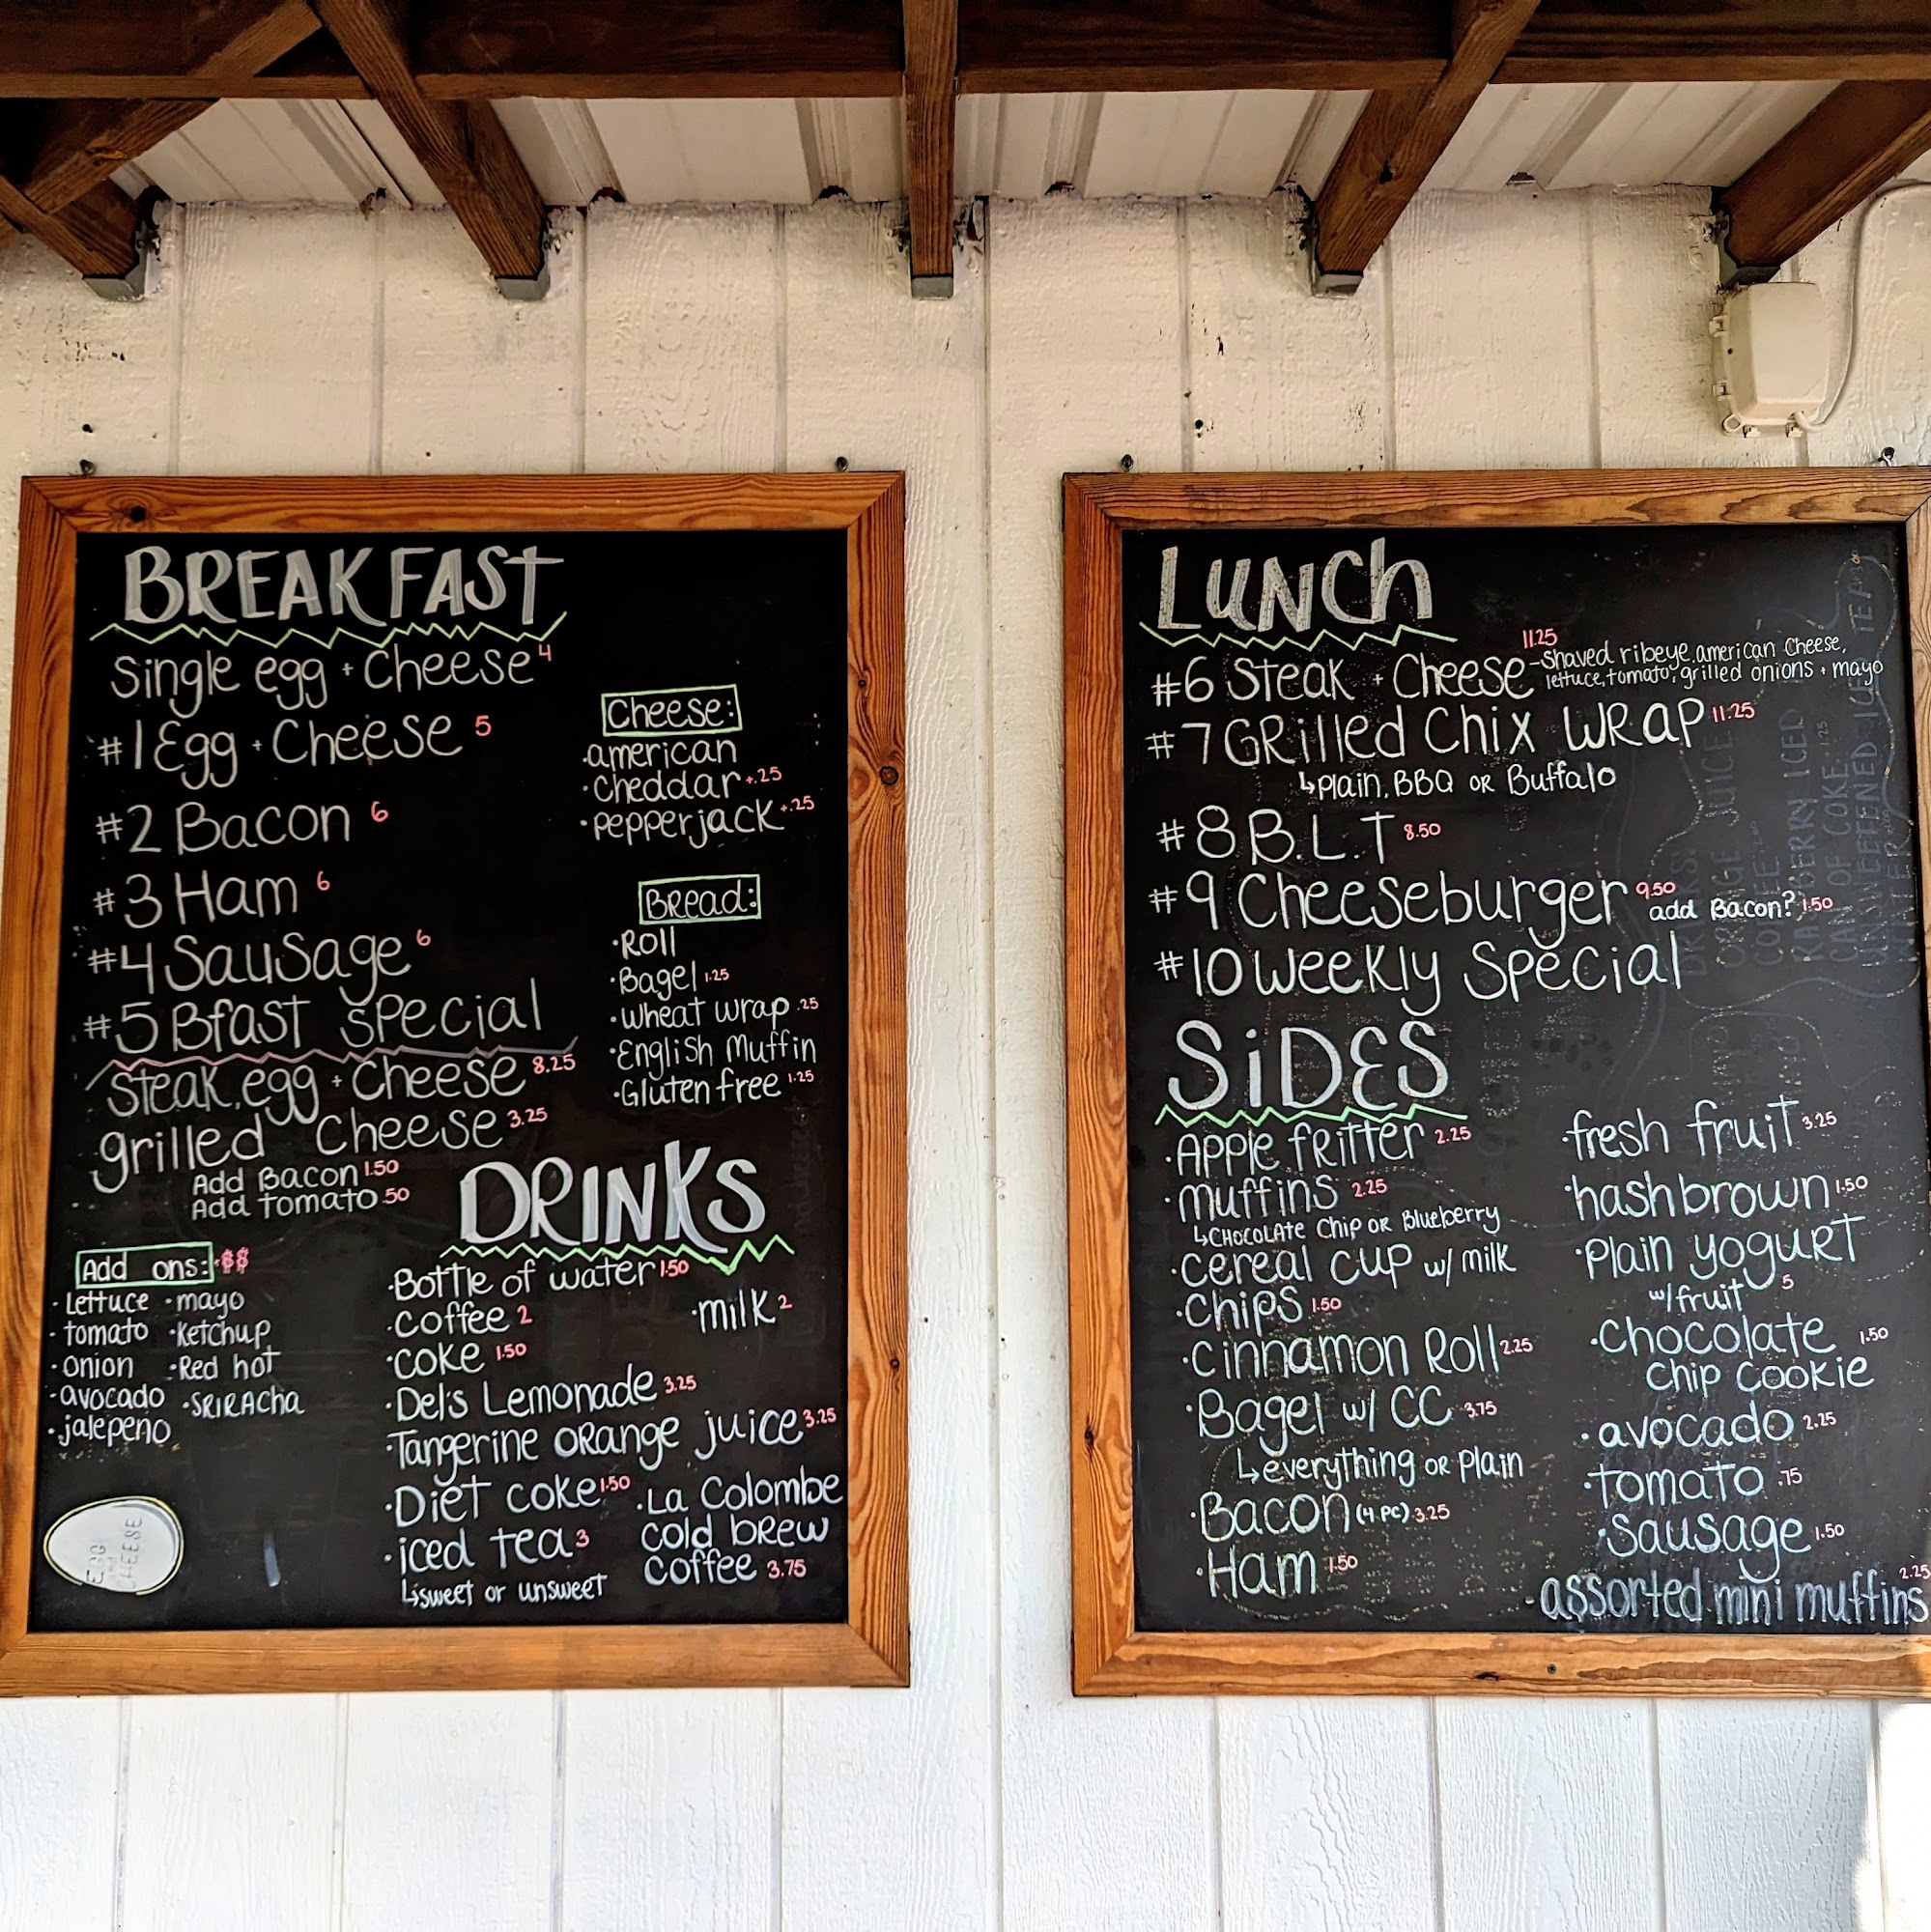 BREAKFAST
Single egg + Cheese 4
#1 Egg + Cheese 5
#2 Bacon 6
#3 Ham 6
#4 Sausage 6
#5 Bfast Special
Steak, egg + Cheese 8.25
grilled Cheese 3.25
Add Bacon 1.50
Add Tomato .50
Cheese:
·american
·Cheddar +.25
·Pepperjack +.25
Bread:
·Roll
·Bagel 1.25
·Wheat wrap .25
·English Muffin
·Gluten free 1.25
Add ons: $$
·Lettuce ·mayo
·tomato ·Ketchup
·onion ·Red hot
·avocado ·SRIRAcha
·jalepeño
EGG
and
CHEESE
DRINKS
·Bottle of water 1.50
·Coffee 2
·milk 2
·Coke 1.50
·Del's Lemonade 3.25
·Tangerine ORange juice 3.25
·Diet coke 1.50
·iced tea 3
↳sweet or unsweet
·La Colombe
cold bREW
coffee 3.75
LUNCh
11.25
#6 Steak + Cheese -Shaved ribeye, american Cheese,
lettuce, tomato, grilled onions + mayo
#7 GRilled Chix WRap 11.25
↳Plain, BBQ OR Buffalo
#8 B.L.T 8.50
#9 Cheeseburger 9.50
add Bacon? 1.50
#10 Weekly Special
SiDES
·Apple fRitter 2.25
·muffins 2.25
↳CHOCOLATE Chip OR Blueberry
·Cereal cup w/ milk
·Chips 1.50
·Cinnamon Roll 2.25
·Bagel w/ CC 3.75
↳everything OR Plain
·Bacon (4 PC) 3.25
·Ham 1.50
·fresh fruit 3.25
·hashbrown 1.50
·Plain yoguRT
w/fruit 5
·Chocolate 1.50
Chip Cookie
·avocado 2.25
·tomato .75
·Sausage 1.50
2.25
-assorted mini muffins